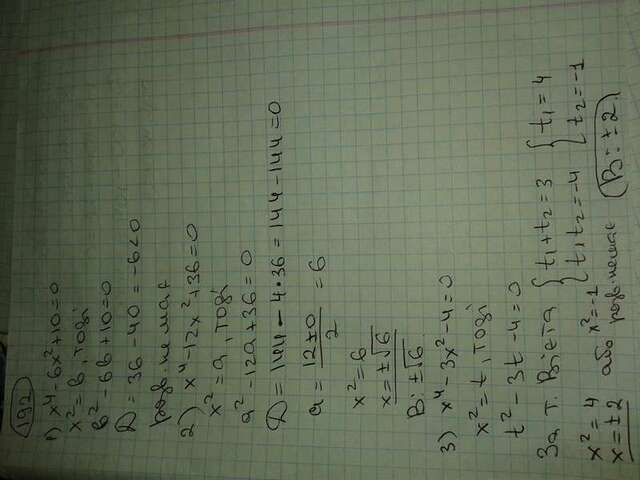 192
1) x⁴-6x²+10=0
x²=b, тоді
b²-6b+10=0
D=36-40=-6<0
розв. немає
2) x⁴-12x²+36=0
x²=a, тоді
a²-12a+36=0
D=144-4·36=144-144=0
a=(12±0)/2=6
x²=6
x=±√6
В: ±√6
3) x⁴-3x²-4=0
x²=t, тоді
t²-3t-4=0
За т. Вієта { t₁+t₂=3 { t₁=4
t₁t₂=-4 t₂=-1
x²=4 або x²=-1
x=±2 розв. немає (В: ±2.)